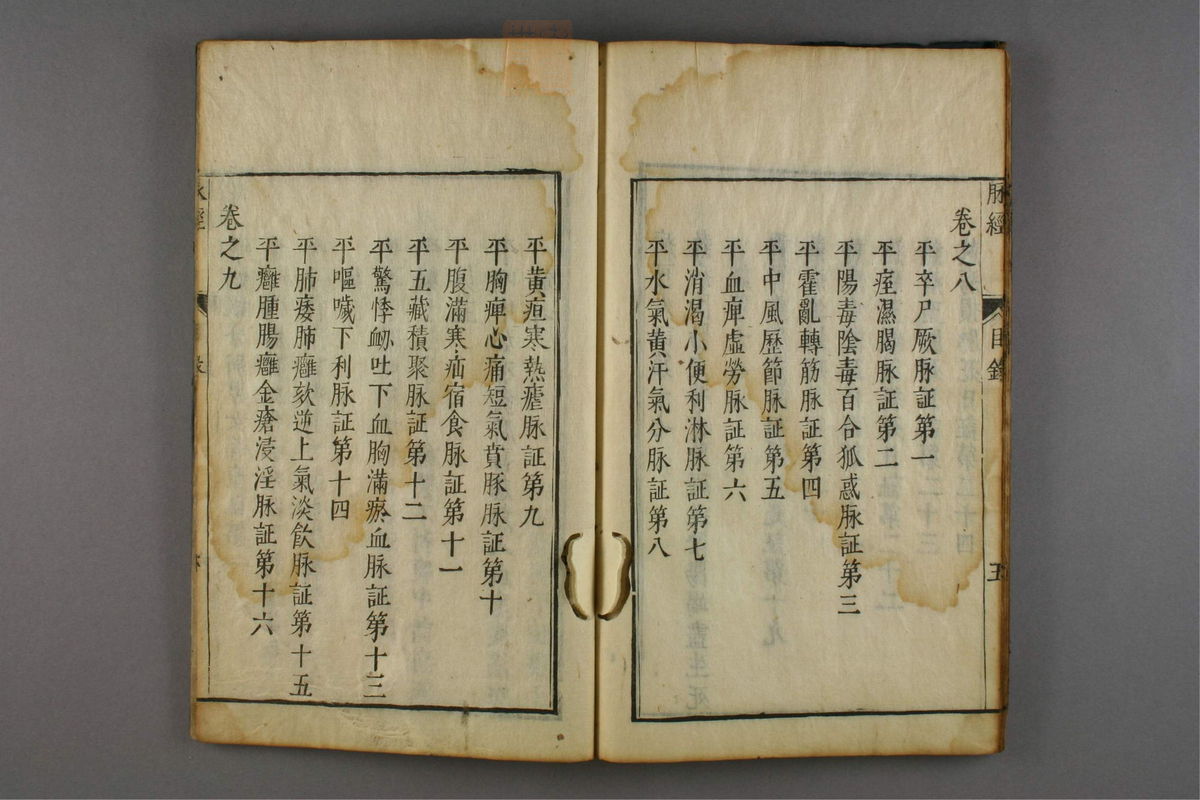 脉經
目錄
五
卷之八
平卒尸厥脉証第一
平痓濕暍脉証第二
平陽毒陰毒百合狐惑脉証第三
平霍亂轉筋脉証第四
平中風歷節脉証第五
平血痺虛勞脉証第六
平消渴小便利淋脉証第七
平水氣黄汗氣分脉証第八
平黄疸寒熱瘧脉証第九
平胸痺心痛短氣賁豚脉証第十
平腹滿寒疝宿食脉証第十一
平五藏積聚脉証第十二
平驚悸衂吐下血胸滿瘀血脉証第十三
平嘔噦下利脉証第十四
平肺痿肺癰欬逆上氣淡飲脉証第十五
平癰腫腸癰金瘡浸淫脉証第十六
卷之九